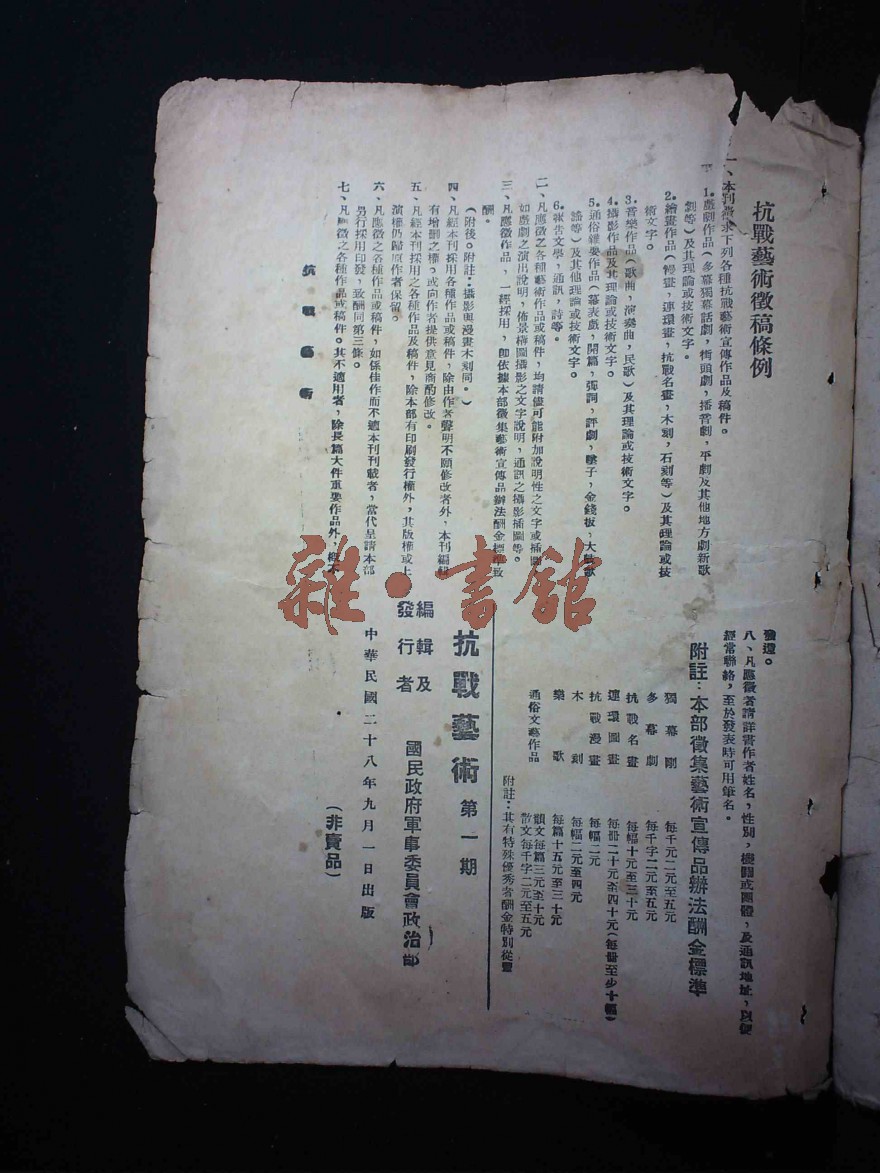 抗戰藝術徵稿條例
一、本刊徵求下列各種抗戰藝術宣傳作品及稿件。
1.戲劇作品(多幕獨幕話劇,街頭劇,播音劇,平劇及其他地方劇新歌
劇等)及其理論或技術文字。
2.繪畫作品(幔畫,連環畫,抗戰名畫,木刻,石刻等)及其理論或技
術文字。
3.音樂作品(歌曲,演奏曲,民歌)及其理論或技術文字。
4.攝影作品及其理論或技術文字。
5.通俗雜耍作品(幕表戲,開篇,彈詞,評劇,墜子,金錢板,大鼓歌
謠等)及其他理論或技術文字。
6.報告文學,通訊,詩等。
二、凡應徵之各種藝術作品或稿件,均請儘可能附加說明性之文字或插圖
如戲劇之演出說明,佈景構圖攝影之文字說明,通訊之攝影插圖等。
三、凡應徵作品,一經採用,即依據本部徵集藝術宣傳品辦法酬金標準致
酬。
(附後。附註:攝影與漫畫木刻同。)
四、凡經本刊採用各種作品或稿件,除由作者聲明不願修改者外,本刊編輯
有增删之權。或向作者提供意見商酌修改。
五、凡經本刊採用之各種作品及稿件,除本部有印刷發行權外,其版權或上
演權仍歸原作者保留。
六、凡應徵之各種作品或稿件,如係佳作而不適本刊刊載者,當代呈請本部
另行採用印發,致酬同第三條。
七、凡應徵之各種作品或稿件。其不適用者,除長篇大件重要作品外,概不
抗戰藝術
發還。
八、凡應徵者請詳書作者姓名,性別,機關或團體,及通訊地址,以便
經常聯絡,至於發表時可用筆名。
附註:本部徵集藝術宣傳品辦法酬金標準
獨幕劇 每千元二元至五元
多幕劇 每千字二元至五元
抗戰名畫 每幅十元至三十元
連環圖畫 每冊二十元至四十元(每冊至少十幅)
抗戰漫畫 每幅二元
木刻 每幅二元至四元
樂歌 每篇十五元至三十元
通俗文藝作品 韻文每篇三元至十元
散文每千字二元至五元
附註:其有特殊優秀者酬金特別從豐
抗戰藝術 第一期
編輯及
發行者 國民政府軍事委員會政治部
中華民國二十八年九月一日出版
(非賣品)
雜·書館